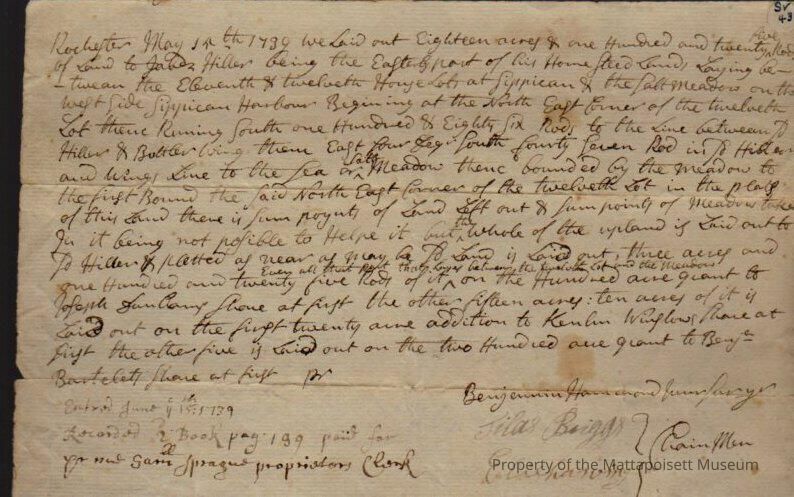 Sv
43
Rochester May 15th 1739 we Laid out Eighteen acres & one Hundred and twenty five Rods
of Land to Jabez Hiller being the Easterly part of his Homesteed Land, Laying be-
-twean the Eleventh & twelveth House Lots at Sippican & the Salt Meadow on the
west Side Sippican Harbour Begining at the North East Corner of the twelveth
Lot thenc Runing South one Hundred & Eighty Six Rods to the Line between sd
Hiller & Buttler wing thenc East four Degr South fourty Seven Rod in sd Hiller
and Wings Line to the Sea or Salt Meadow thenc bounded by the meadow to
the first Bound the said North East Corner of the twelveth Lot in the plat
of this Land there is sum poynts of Land Left out & sum points of Meadow taken
In it being not posible to Helpe it but the whole of the upland is Laid out to
sd Hiller & platted as near as may be sd Land is Laid out, three acres and
Even all that part that Lyes between the twelveth Lot and the Meadow
one Hundred and twenty five Rods of it on the Hundred acre grant to
Joseph Share at first the other fifteen acres: ten acres of it is
Laid out on the first twenty acre addition to Kenlm Winslows Share at
first the other five is Laid out on the two Hundred acre grant to Benjn
Bartelets Share at first pr
Benjamin Hammond Junr Survyr
Entred June ye 1739
Recorded 2 Book pag: 139 paid for
pr me Samll Sprague proprietors Clerk
Silas Briggs
Chain Men
Property of the Mattapoisett Museum